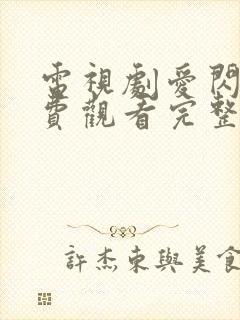 電視劇愛閃
費觀看完整
許杰東與美食